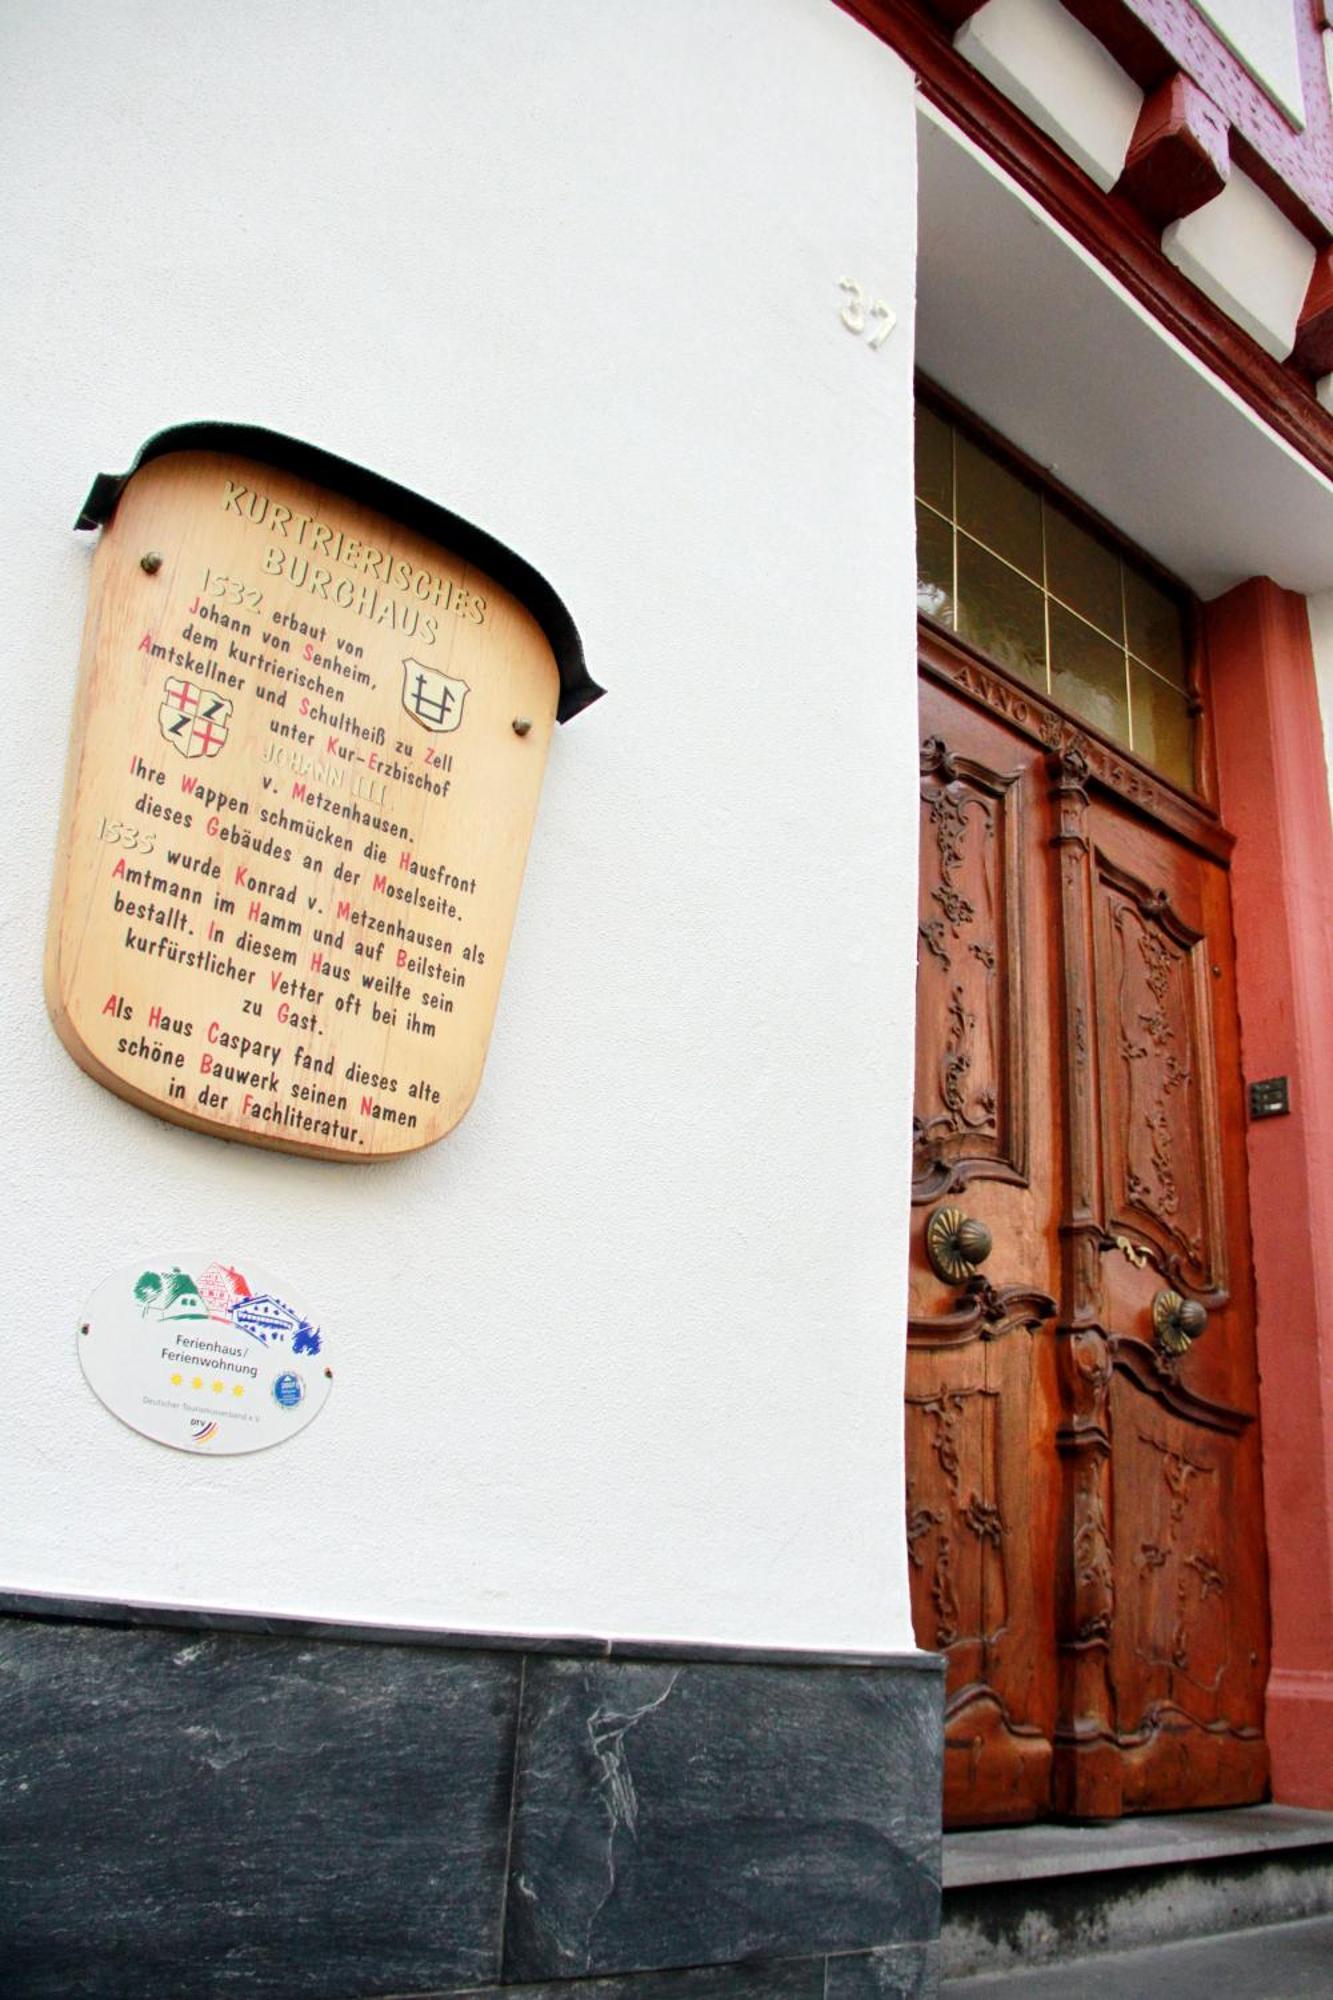 37
KURTRIERISCHES
BURGHAUS
1532 erbaut von
Johann von Senheim,
dem kurtrierischen
Amtskellner und Schultheiß zu Zell
unter Kur-Erzbischof
JOHANN III.
v. Metzenhausen.
Ihre Wappen schmücken die Hausfront
dieses Gebäudes an der Moselseite.
1535 wurde Konrad v. Metzenhausen als
Amtmann im Hamm und auf Beilstein
bestallt. In diesem Haus weilte sein
kurfürstlicher Vetter oft bei ihm
zu Gast.
Als Haus Caspary fand dieses alte
schöne Bauwerk seinen Namen
in der Fachliteratur.
Z
Z
Ferienhaus/
Ferienwohnung
Deutscher Tourismusverband e.V.
DTV
ANNO 1532